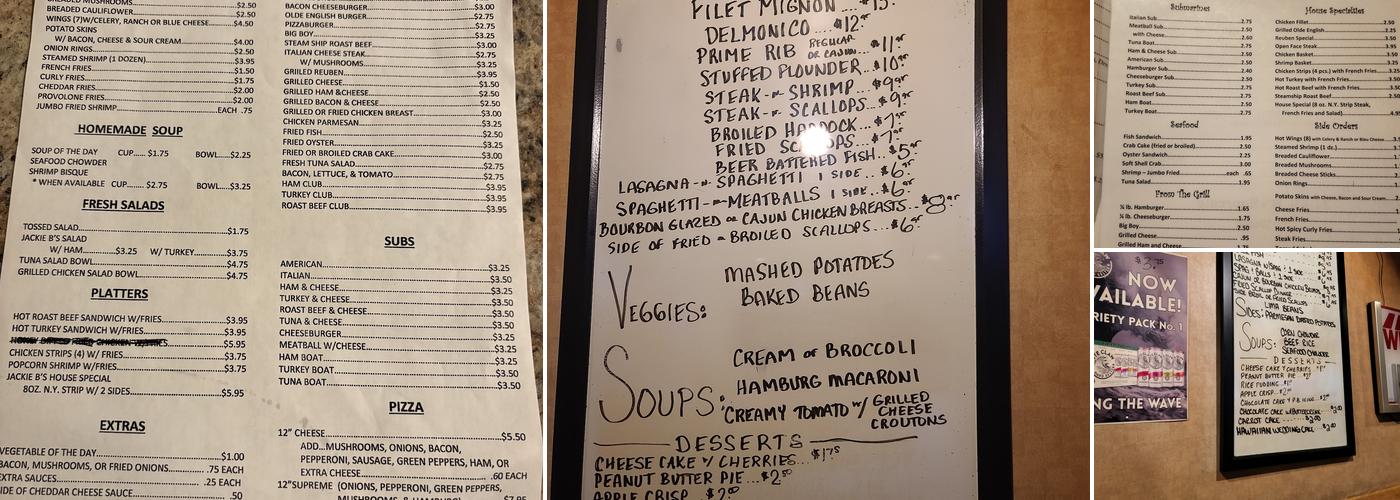 BREADED CAULIFLOWER $2.50
WINGS (7)W/CELERY, RANCH OR BLUE CHEESE $4.50
POTATO SKINS
W/ BACON, CHEESE & SOUR CREAM $4.00
ONION RINGS $2.50
STEAMED SHRIMP (1 DOZEN) $3.95
FRENCH FRIES $1.50
CURLY FRIES $1.75
CHEDDAR FRIES $2.00
PROVOLONE FRIES $2.00
JUMBO FRIED SHRIMP EACH .75
HOMEMADE SOUP
SOUP OF THE DAY CUP..... $1.75 BOWL....$2.25
SEAFOOD CHOWDER
SHRIMP BISQUE
* WHEN AVAILABLE CUP..... $2.75 BOWL....$3.25
FRESH SALADS
TOSSED SALAD $1.75
JACKIE B'S SALAD
W/ HAM $3.25 W/ TURKEY $3.75
TUNA SALAD BOWL $4.75
GRILLED CHICKEN SALAD BOWL $4.75
PLATTERS
HOT ROAST BEEF SANDWICH W/FRIES $3.95
HOT TURKEY SANDWICH W/FRIES $3.95
$5.95
CHICKEN STRIPS (4) W/ FRIES $3.75
POPCORN SHRIMP W/FRIES $3.75
JACKIE B'S HOUSE SPECIAL
8OZ. N.Y. STRIP W/ 2 SIDES $5.95
EXTRAS
VEGETABLE OF THE DAY $1.00
BACON, MUSHROOMS, OR FRIED ONIONS .75 EACH
EXTRA SAUCES .25 EACH
SIDE OF CHEDDAR CHEESE SAUCE .50
BACON CHEESEBURGER $3.00
OLDE ENGLISH BURGER $2.75
PIZZABURGER $2.75
BIG BOY $3.25
STEAM SHIP ROAST BEEF $3.00
ITALIAN CHEESE STEAK $2.75
W/ MUSHROOMS $3.25
GRILLED REUBEN $3.95
GRILLED CHEESE $1.50
GRILLED HAM &CHEESE $2.50
GRILLED BACON & CHEESE $2.50
GRILLED OR FRIED CHICKEN BREAST $3.00
CHICKEN PARMESAN $3.25
FRIED FISH $2.50
FRIED OYSTER $3.25
FRIED OR BROILED CRAB CAKE $3.00
FRESH TUNA SALAD $2.75
BACON, LETTUCE, & TOMATO $2.75
HAM CLUB $3.95
TURKEY CLUB $3.95
ROAST BEEF CLUB $3.95
SUBS
AMERICAN $3.25
ITALIAN $3.25
HAM & CHEESE $3.25
TURKEY & CHEESE $3.50
ROAST BEEF & CHEESE $3.50
TUNA & CHEESE $3.50
CHEESEBURGER $3.25
MEATBALL W/CHEESE $3.25
HAM BOAT $3.25
TURKEY BOAT $3.50
TUNA BOAT $3.50
PIZZA
12" CHEESE $5.50
ADD...MUSHROOMS, ONIONS, BACON,
PEPPERONI, SAUSAGE, GREEN PEPPERS, HAM, OR
EXTRA CHEESE .60 EACH
12"SUPREME (ONIONS, PEPPERONI, GREEN PEPPERS,
FILET MIGNON
DELMONICO $12
PRIME RIB REGULAR OR CAJUN $11
STUFFED FLOUNDER $10
STEAK SHRIMP $9
STEAK SCALLOPS $9
BROILED HADDOCK $7
FRIED SCALLOPS $7
BEER BATTERED FISH $5
LASAGNA SPAGHETTI 1 SIDE $6
SPAGHETTI MEATBALLS 1 SIDE $6
BOURBON GLAZED OR CAJUN CHICKEN BREASTS $8
SIDE OF FRIED OR BROILED SCALLOPS $6
VEGGIES: MASHED POTATOES
BAKED BEANS
SOUPS: CREAM OF BROCCOLI
HAMBURG MACARONI
CREAMY TOMATO W/ GRILLED CHEESE CROUTONS
DESSERTS
CHEESE CAKE W/ CHERRIES $1.75
PEANUT BUTTER PIE $2.00
APPLE CRISP $2.00
Submarines
Italian Sub 2.75
Meatball Sub
with Cheese 2.60
Tuna Boat 2.75
Ham & Cheese Sub
American Sub 2.50
Hamburger Sub 2.40
Cheeseburger Sub 2.50
Turkey Sub 2.75
Roast Beef Sub
Ham Boat 2.50
Turkey Boat 2.75
Seafood
Fish Sandwich 1.95
Crab Cake (fried or broiled) 2.50
Oyster Sandwich 2.25
Soft Shell Crab 3.00
Shrimp – Jumbo Fried each .65
Tuna Salad 1.95
From The Grill
¼ lb. Hamburger 1.65
¼ lb. Cheeseburger 1.75
Big Boy 2.50
Grilled Cheese .95
Grilled Ham and Cheese
House Specialties
Chicken Fillet 2.50
Grilled Olde English 2.25
Reuben Special
Open Face Steak 3.95
Chicken Basket
Shrimp Basket 3.25
Chicken Strips (4 pcs.) with French Fries
Hot Turkey with French Fries
Hot Roast Beef with French Fries
Steamship Roast Beef
House Special (8 oz. N.Y. Strip Steak,
French Fries and Salad)
Side Orders
Hot Wings (8) with Celery & Ranch or Bleu Cheese
Steamed Shrimp (1 dz.)
Breaded Cauliflower
Breaded Mushrooms
Breaded Cheese Sticks
Onion Rings
Potato Skins with Cheese, Bacon and Sour Cream
Cheese Fries
French Fries
Hot Spicy Curly Fries
Steak Fries
NOW
AVAILABLE!
RIETY PACK No. 1
NG THE WAVE
LIMA BEANS
SIDES: PARMESAN ROASTED POTATOES
SOUPS: CORN CHOWDER
BEEF RICE
SEAFOOD CHOWDER
DESSERTS
CHEESE CAKE W/ CHERRIES
PEANUT BUTTER PIE
RICE PUDDING
APPLE CRISP
CHOCOLATE CAKE
CARROT CAKE
HAWAIIAN WEDDING CAKE